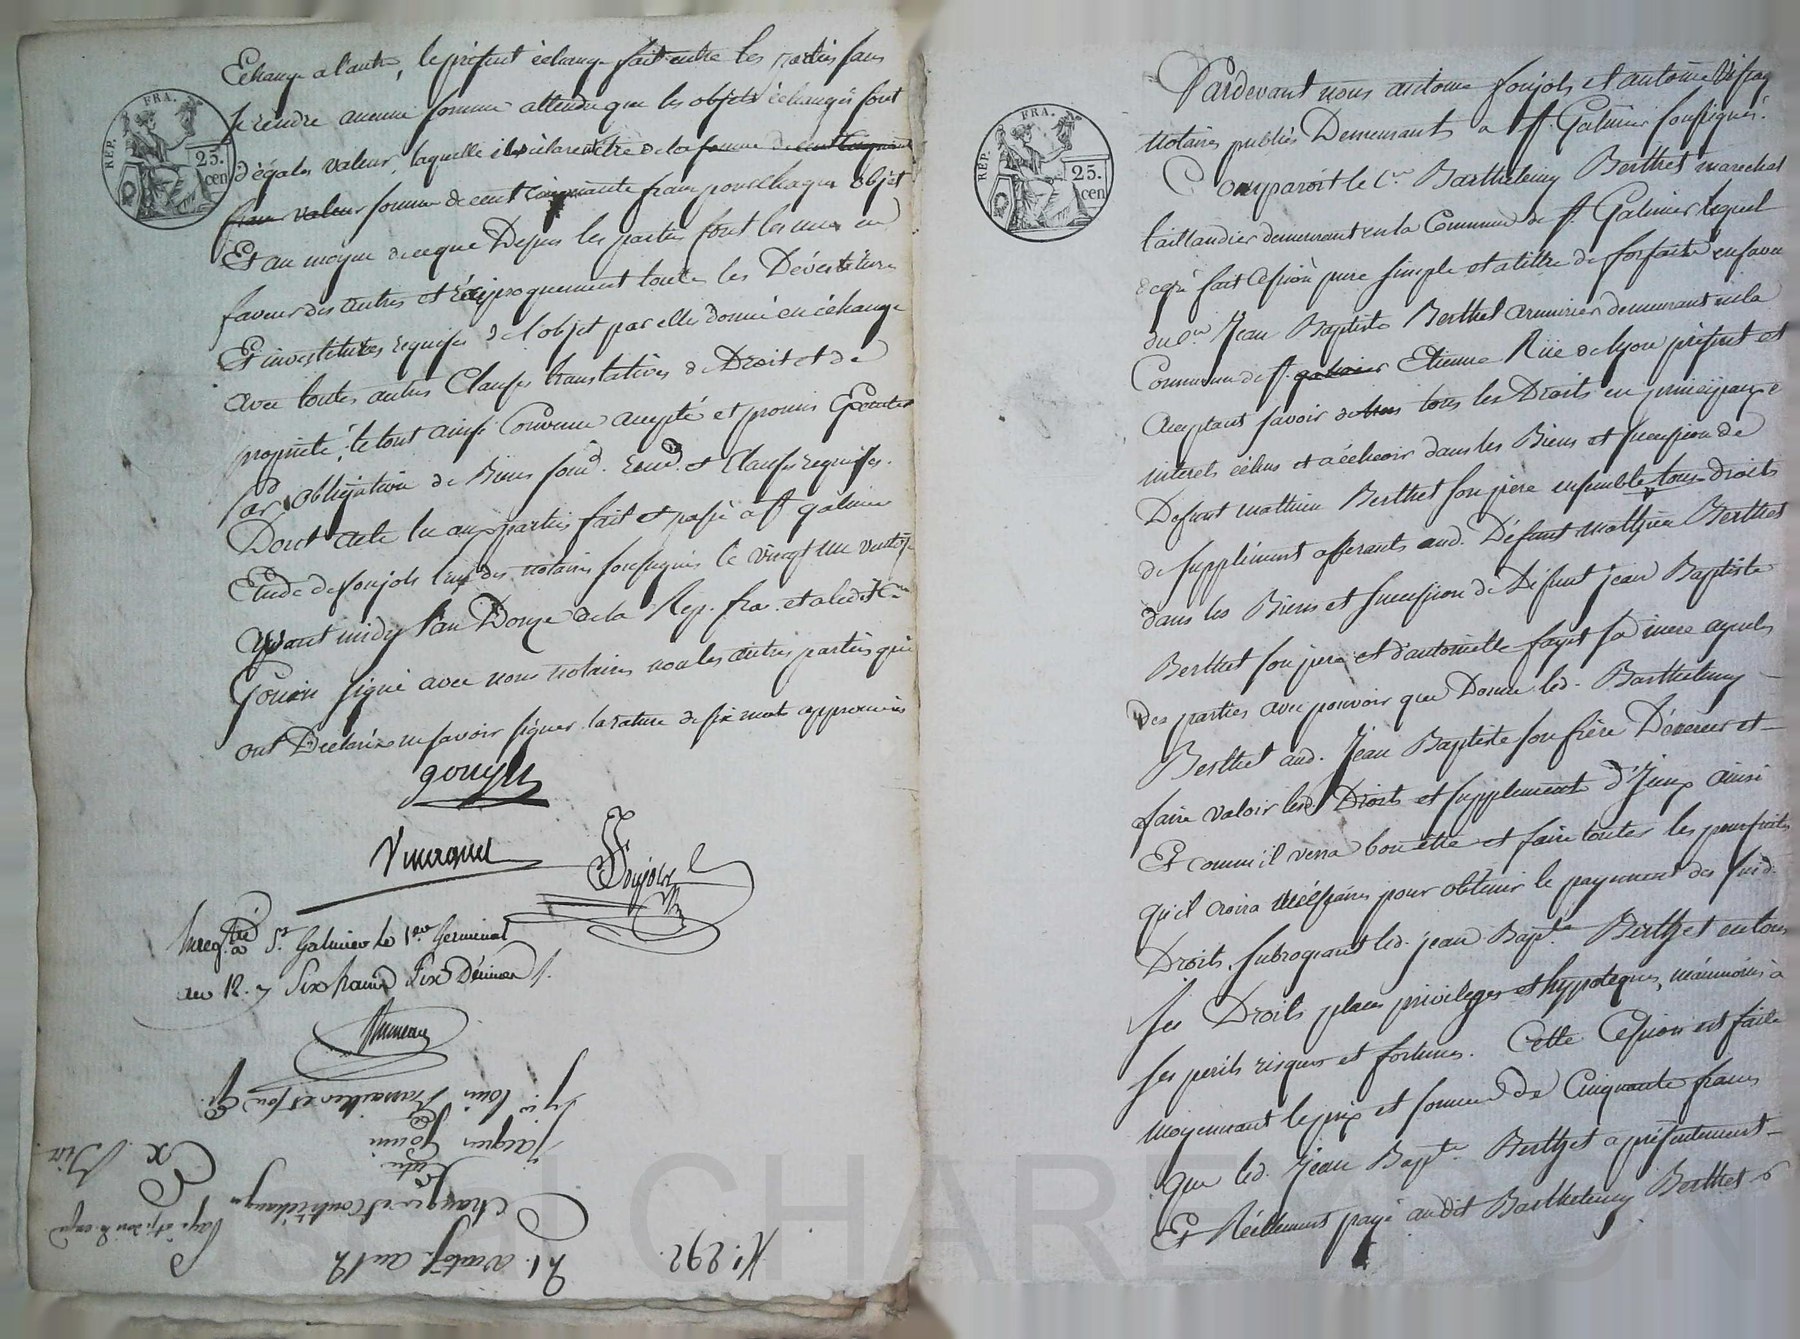 Echange a l'autre, le présent échange fait entre les parties sans
se rendre aucune somme attendu que les objets échangés sont
d'égales valeur, laquelle ils déclarent être de la somme de cent cinquante
francs valeur somme de cent cinquante francs pour chaque objet
Et au moyen de ce que Depuis les parties font les unes en
faveur des autres et réciproquement toutes les Dévestitures
Et investitures requises de l'objet par elle donné en échange
avec toutes autres Clauses translatives de Droit et de
propriété, le tout ainsi Convenu accepté et promis Exécuter
par obligation de Biens soum. renon. et Clauses requises.
Dont acte lu aux parties fait et passé a St. galmier
Etude de soujols l'un des notaires soussignés le vingt un ventose
avant midy l'an Douze de la Rép. fra. et a ledit Cen
Gonon signé avec nous notaires non les autres parties qui
ont Déclaré ne savoir signer. la rature de six mots approuvée
gonon
Vincent
Soujols
Enreg.tré a St Galmier le 1er Germinal
an 12. 7 Six francs Six Décimes
N°. 292.
21. ventose an 12
Echange et contréchange
Entre
Jacques Gonon
Et
Sr. Louis et son Ep.
REP. FRA.
25. cen
Pardevant nous antoine soujols et antoine
Notaires publics Demeurants a St. Galmier soussignés.
Comparoit le Cen Barthelemy Berthet marechal
taillandier demeurant en la Commune de St. Galmier lequel
de gré fait Cession pure simple et a tittre de forfait en faveur
du Cen Jean Baptiste Berthet armurier demeurant en la
Commune de St. galmier Etienne Rue de lyon présent et
acceptant savoir de tous les Droits en principaux &
interets échus et a écheoir dans les Biens et succession de
Défunt mathieu Berthet son père ensemble tous droits
de supplément afférants aud. Défunt mathieu Berthet
dans les Biens et succession de Défunt jean Baptiste
Berthet son père et d'antoinette fayet sa mère ayeuls
des parties avec pouvoir que Donne led. Barthelemy
Berthet aud. Jean Baptiste son frère D'exercer et
faire valoir lesd. Droits et supplements d'Iceux ainsi
Et comme il verra bon être et faire toutes les poursuites
qu'il croira nécéssaires pour obtenir le payement des susd.
Droits, subrogeant led. jean Bapte. Berthet en tous
ses Droits places privileges et hypoteques, néanmoins à
ses perils risques et fortunes. Cette Cession est faite
moyennant le prix et somme de Cinquante francs
que led. Jean Bapte. Berthet a présentement
Et Réellement payé audit Barthelemy Berthet
REP. FRA.
25. cen
CHARENRON